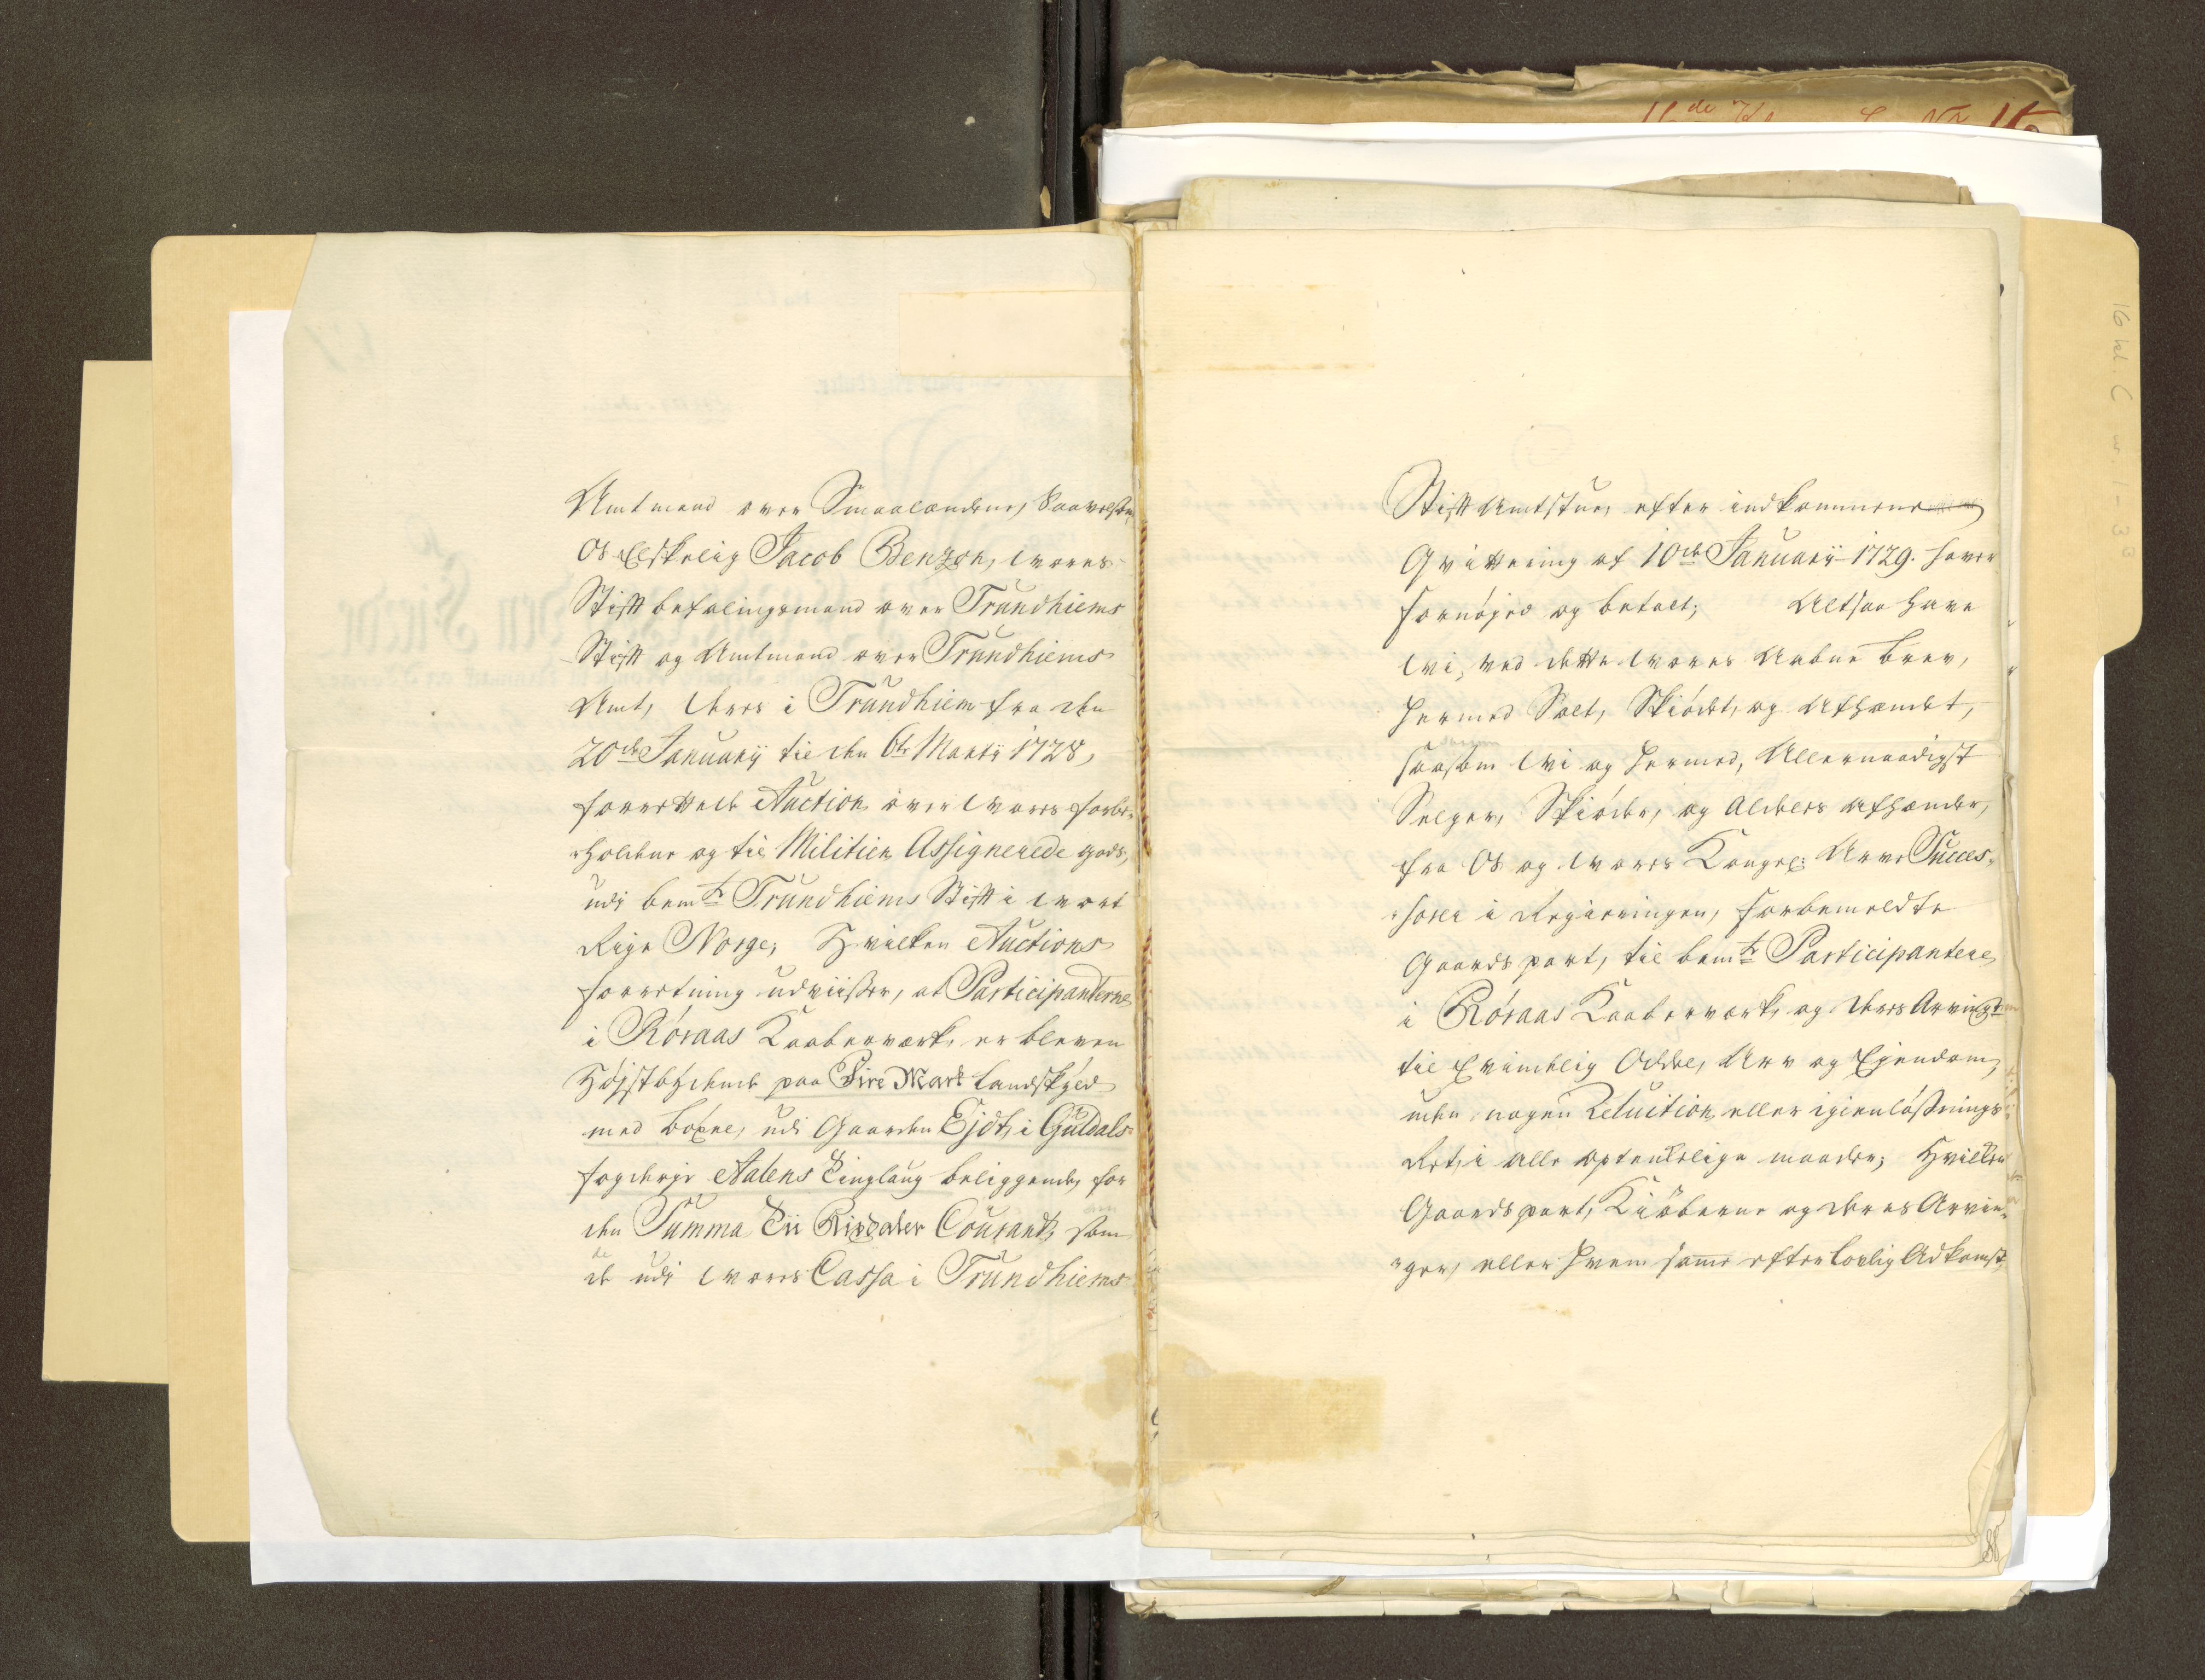 Amtmand over Smaalandene, saavelsom
Os Elskelig Jacob Benzon, Wores
Stiftbefalingsmand over Trundhiems
Stift og Amtmand over Trundhiems
Amt, Deres i Trundhiem fra den
20de January til den 6te Marty 1728,
forrettede Auction over Wores forbe-
-holdene og til Militien Assignerede gods,
udi bemte Trundhiems Stift i Wort
Rige Norge; Hvilken Auctions
forretning udviisser, at Participanterne
i Röraas Kaaberværk, er bleven
Höjstbydende paa Fire Mark Landskyld
med böxel, udi Gaarden Ejdt, i Guldals
fogderje Aalens Tinglaug beliggende, for
den Summa Tii Rixdaler Courant, som
de udi Wores Cassa i Trundhiems
Stift Amtstue, efter indkommene
Qvittering af 10de January 1729. haver
fornöyed og betalt; Altsaa Have
Wi, ved dette Wores Aabne brev,
hermed Solt, Skiödet, og Afhændet,
saasom Wi og hermed, Allernaadigst
Selger, Skiöder, og Aldeles afhænder,
fra Os og Wores Kongel: Arve Succes-
-sorer i Regieringen, forbemeldte
Gaardspart, til bemte Participantere
i Röraas Kaaberværk, og deres Arvinger
til Evindelig Oddel, Arv og Ejendom,
uden nogen Reluition eller igienlössnings
Ret, i alle optenkelige maader; Hvilken
Gaardspart, Kiöberne og deres Arvin-
-ger, eller hvem samme efter lovlig Adkomst
16 kl. C nr 1-33